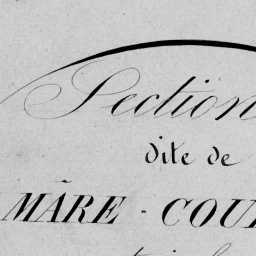 Section
dite de
MÃRE - COU